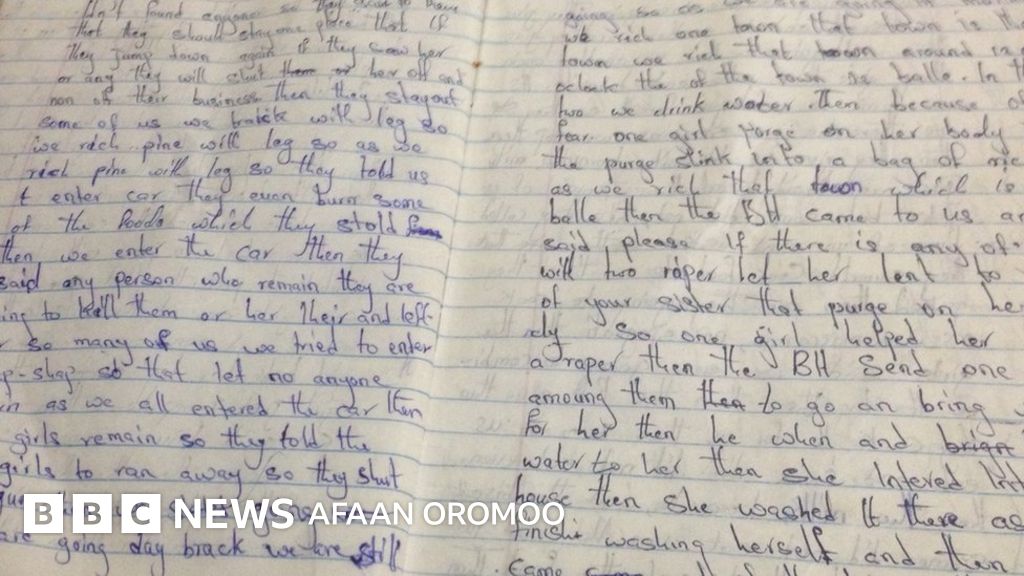 found anyone so they
that they should stay one place that If
They Jump down again if they saw her
or any they will shut them or her off and
non of their business then they stayout
some of us we with leg so
we rich pine will leg so as we
rich pine with leg so they told us
t enter car they even burn some
of the foods which they stold
then we enter the car then they
said any person who remain they are
ing to kill them or her Their and left
so many of us we tried to enter
p-shap so that let no anyone
in as we all entered the car then
girls remain so they told the
girls to ran away so they shut
are going day brack we are still
going so as we are going in
we rich one town that town is the
town we rich that town around
oclock the of the town is balle. In th
two we drink water. Then because of
fear one girl purge on her body
the purge stink into a bag of ric
as we rich that town which is
balle then the BH came to us an
said, please If there is any of
will two raper let her lent to
of your sister that purge on he
dy So one girl helped her
a raper then the BH Send one
amoung them then to go an bring
for her then he when and brigh
water to her then she Intered Int
house then she washed It there as
finish washing herself and then
came
BBC NEWS AFAAN OROMOO